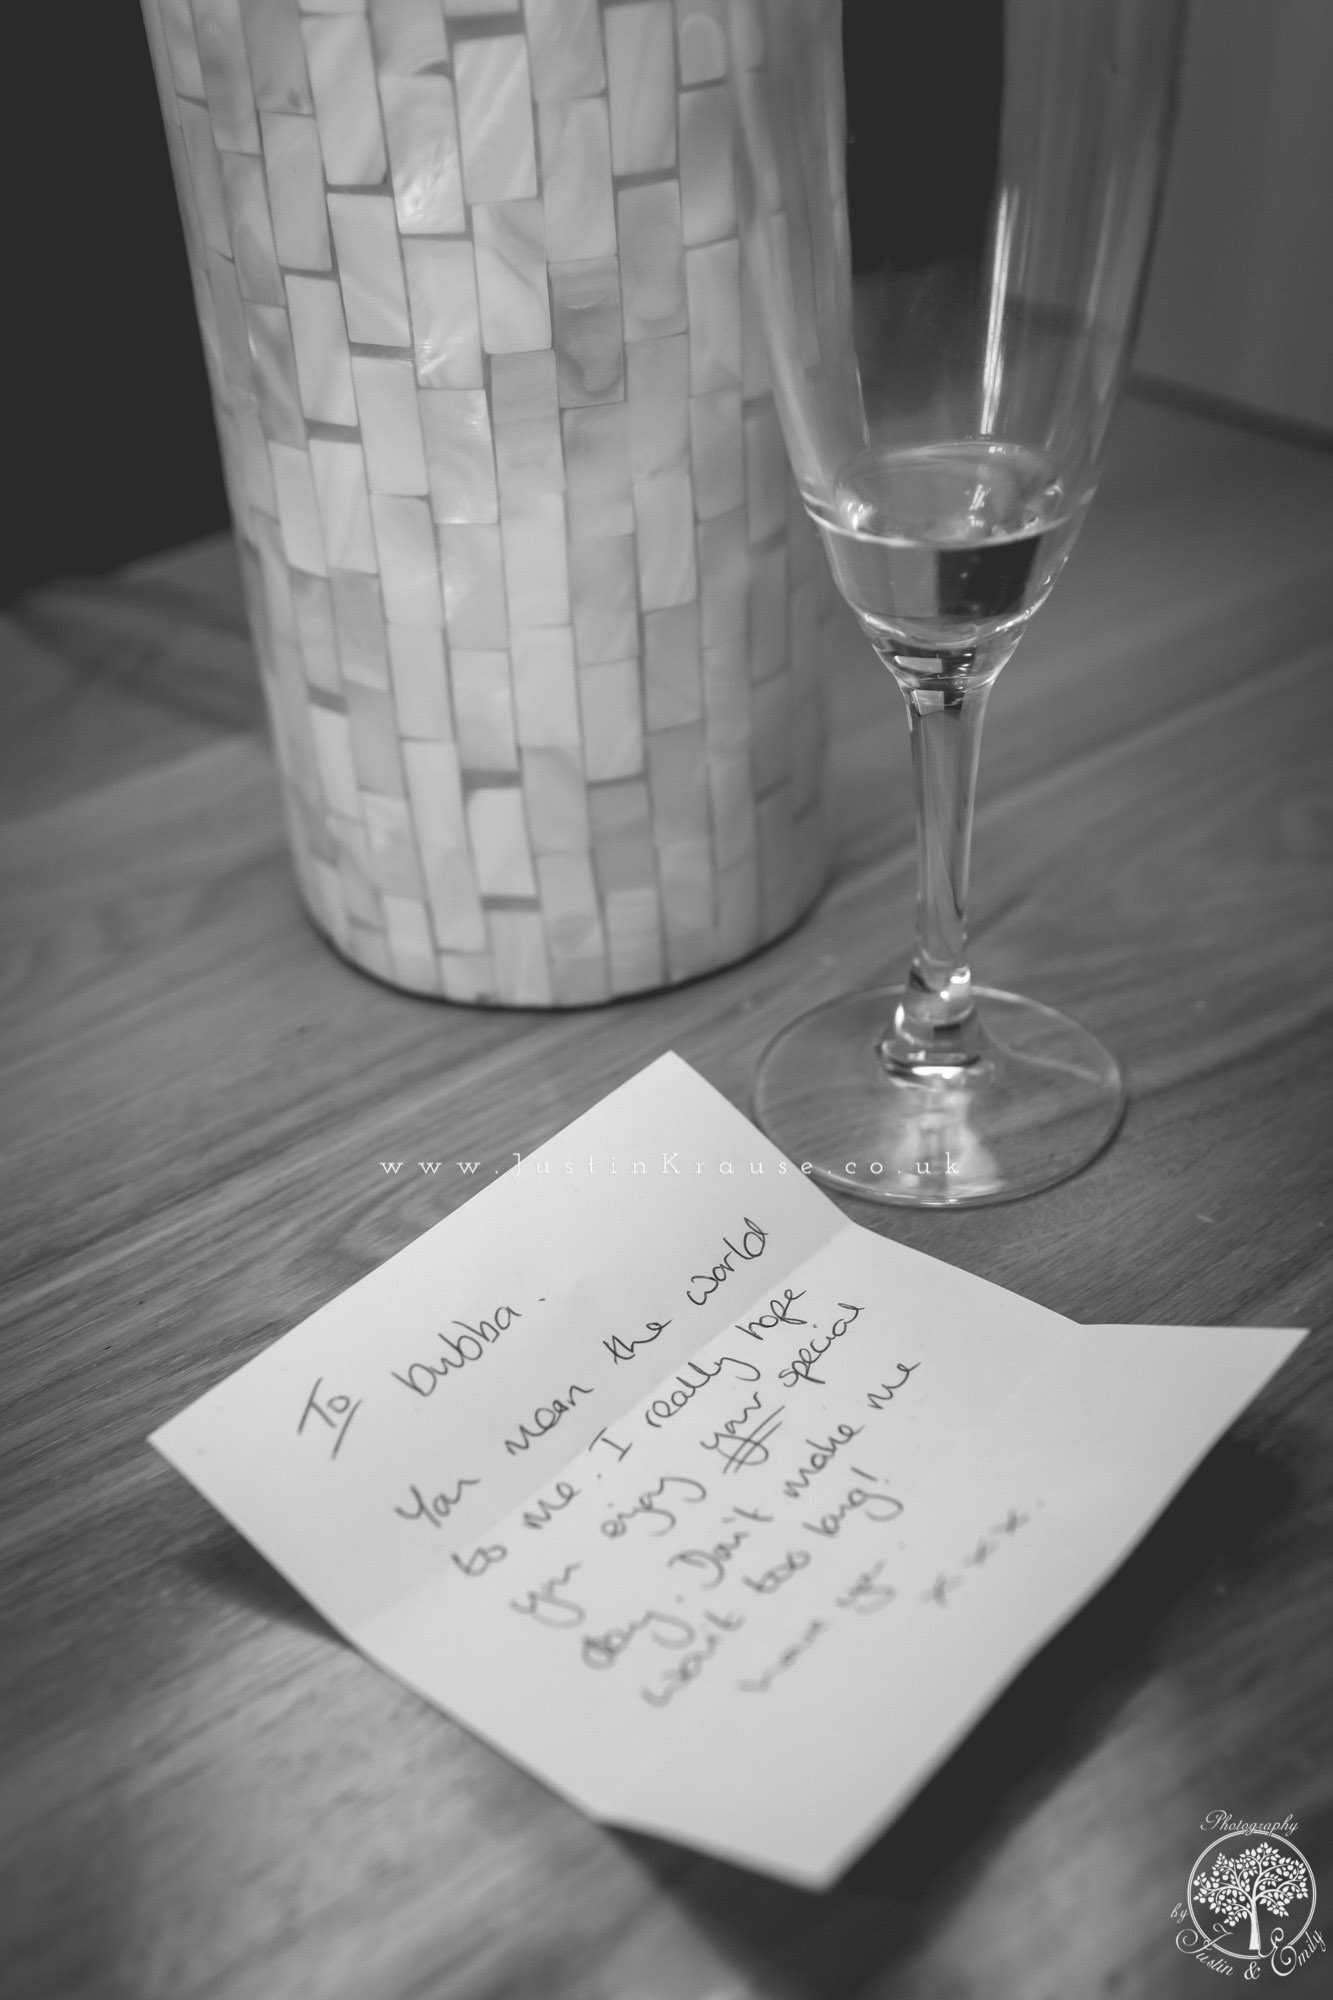 www.JustinKrause.co.uk
To bubba.
You mean the world
to me. I really hope
you enjoy your special
day. Don't make me
wait too long!
love you.
x x x x.
Photography
by
Justin & Emily